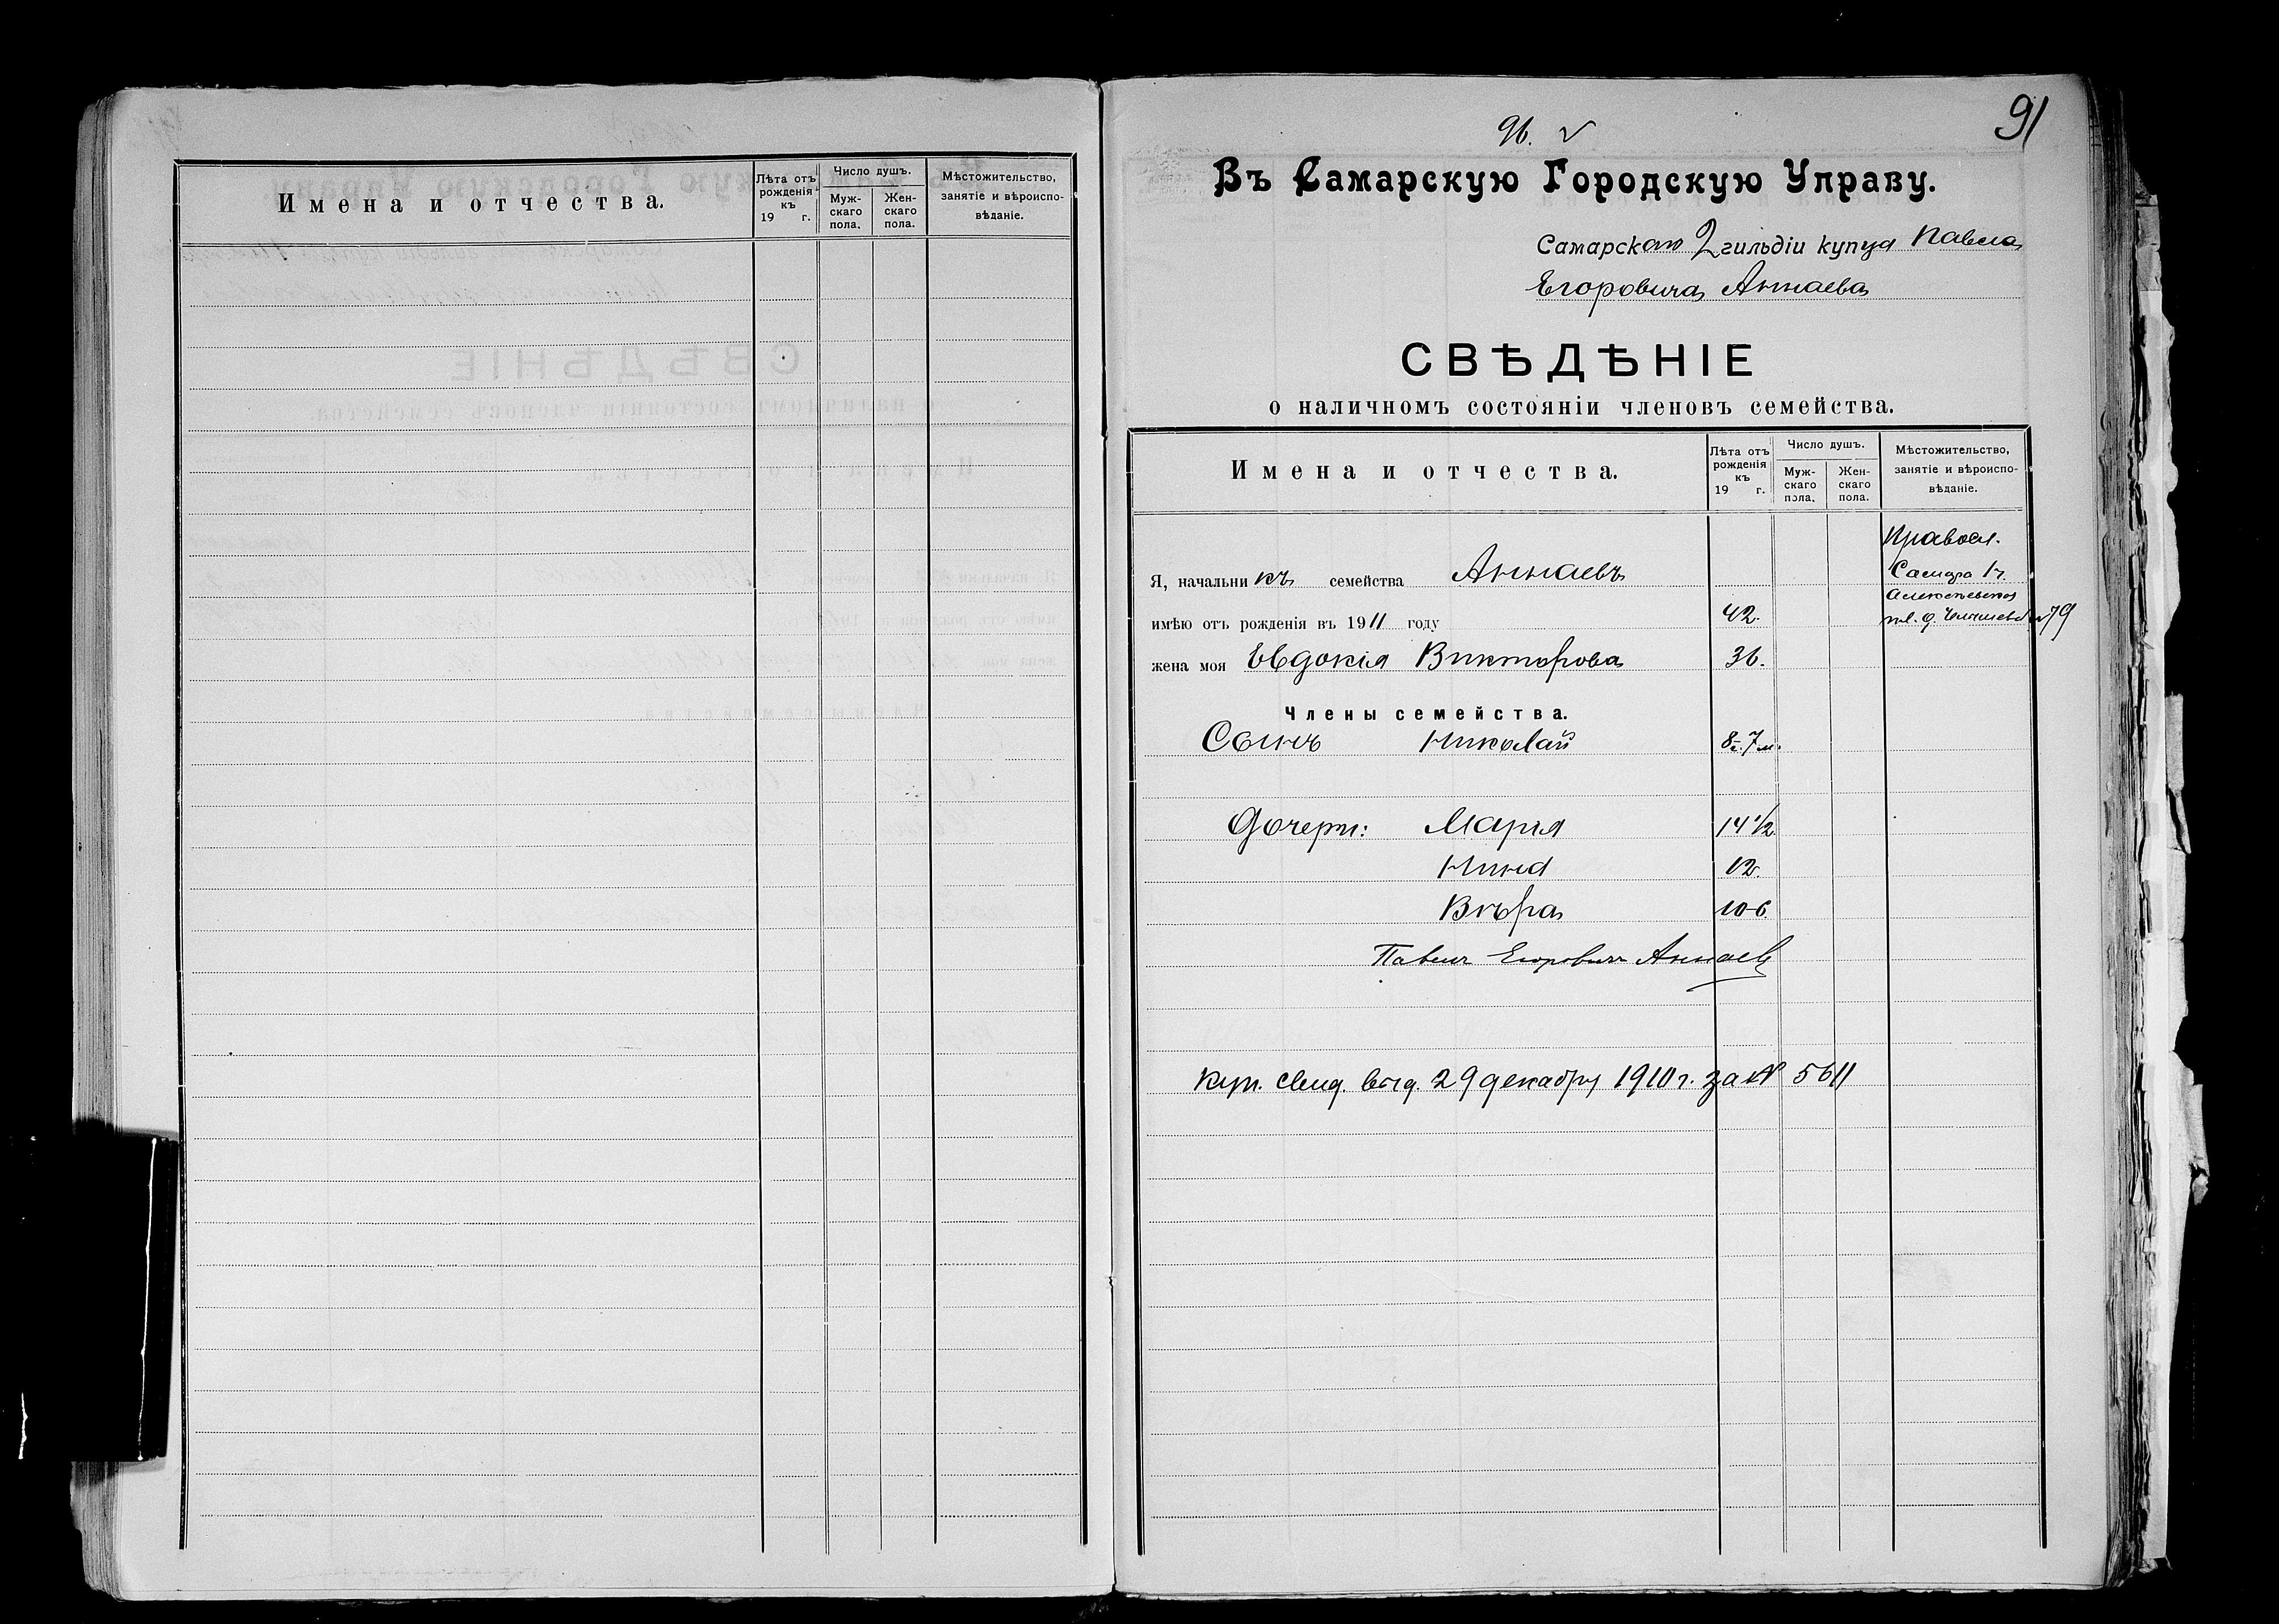 Имена и отчества.
Лѣта отъ рожденія къ 19 г.
Число душъ.
Муж-
скаго
пола.
Жен-
скаго
пола.
Мѣстожительство,
занятіе и вѣроиспо-
вѣданіе.
91
96. v
Въ Самарскую Городскую Управу.
Самарскаго 2 гильдіи купца Павла
Егоровича Аннаева
СВѢДѢНІЕ
о наличномъ состояніи членовъ семейства.
Имена и отчества.
Лѣта отъ
рожденія
къ
19 г.
Число душъ.
Муж-
скаго
пола.
Жен-
скаго
пола.
Мѣстожительство,
занятіе и вѣроиспо-
вѣданіе.
Правосл.
Я, начальникъ семейства Аннаевъ
Самара 1 ч.
Алексѣевская
имѣю отъ рожденія въ 1911 году 42.
пл. д. 79
жена моя Евдокія Викторова 36.
Члены семейства.
Сынъ Николай 8 г. 7 м.
Дочери: Марія 14 1/2
Нина 12.
Вѣра 10-6
Павелъ Егоровичъ Аннаев
Куп. свид. выд. 29 декабря 1910 г. за № 5611